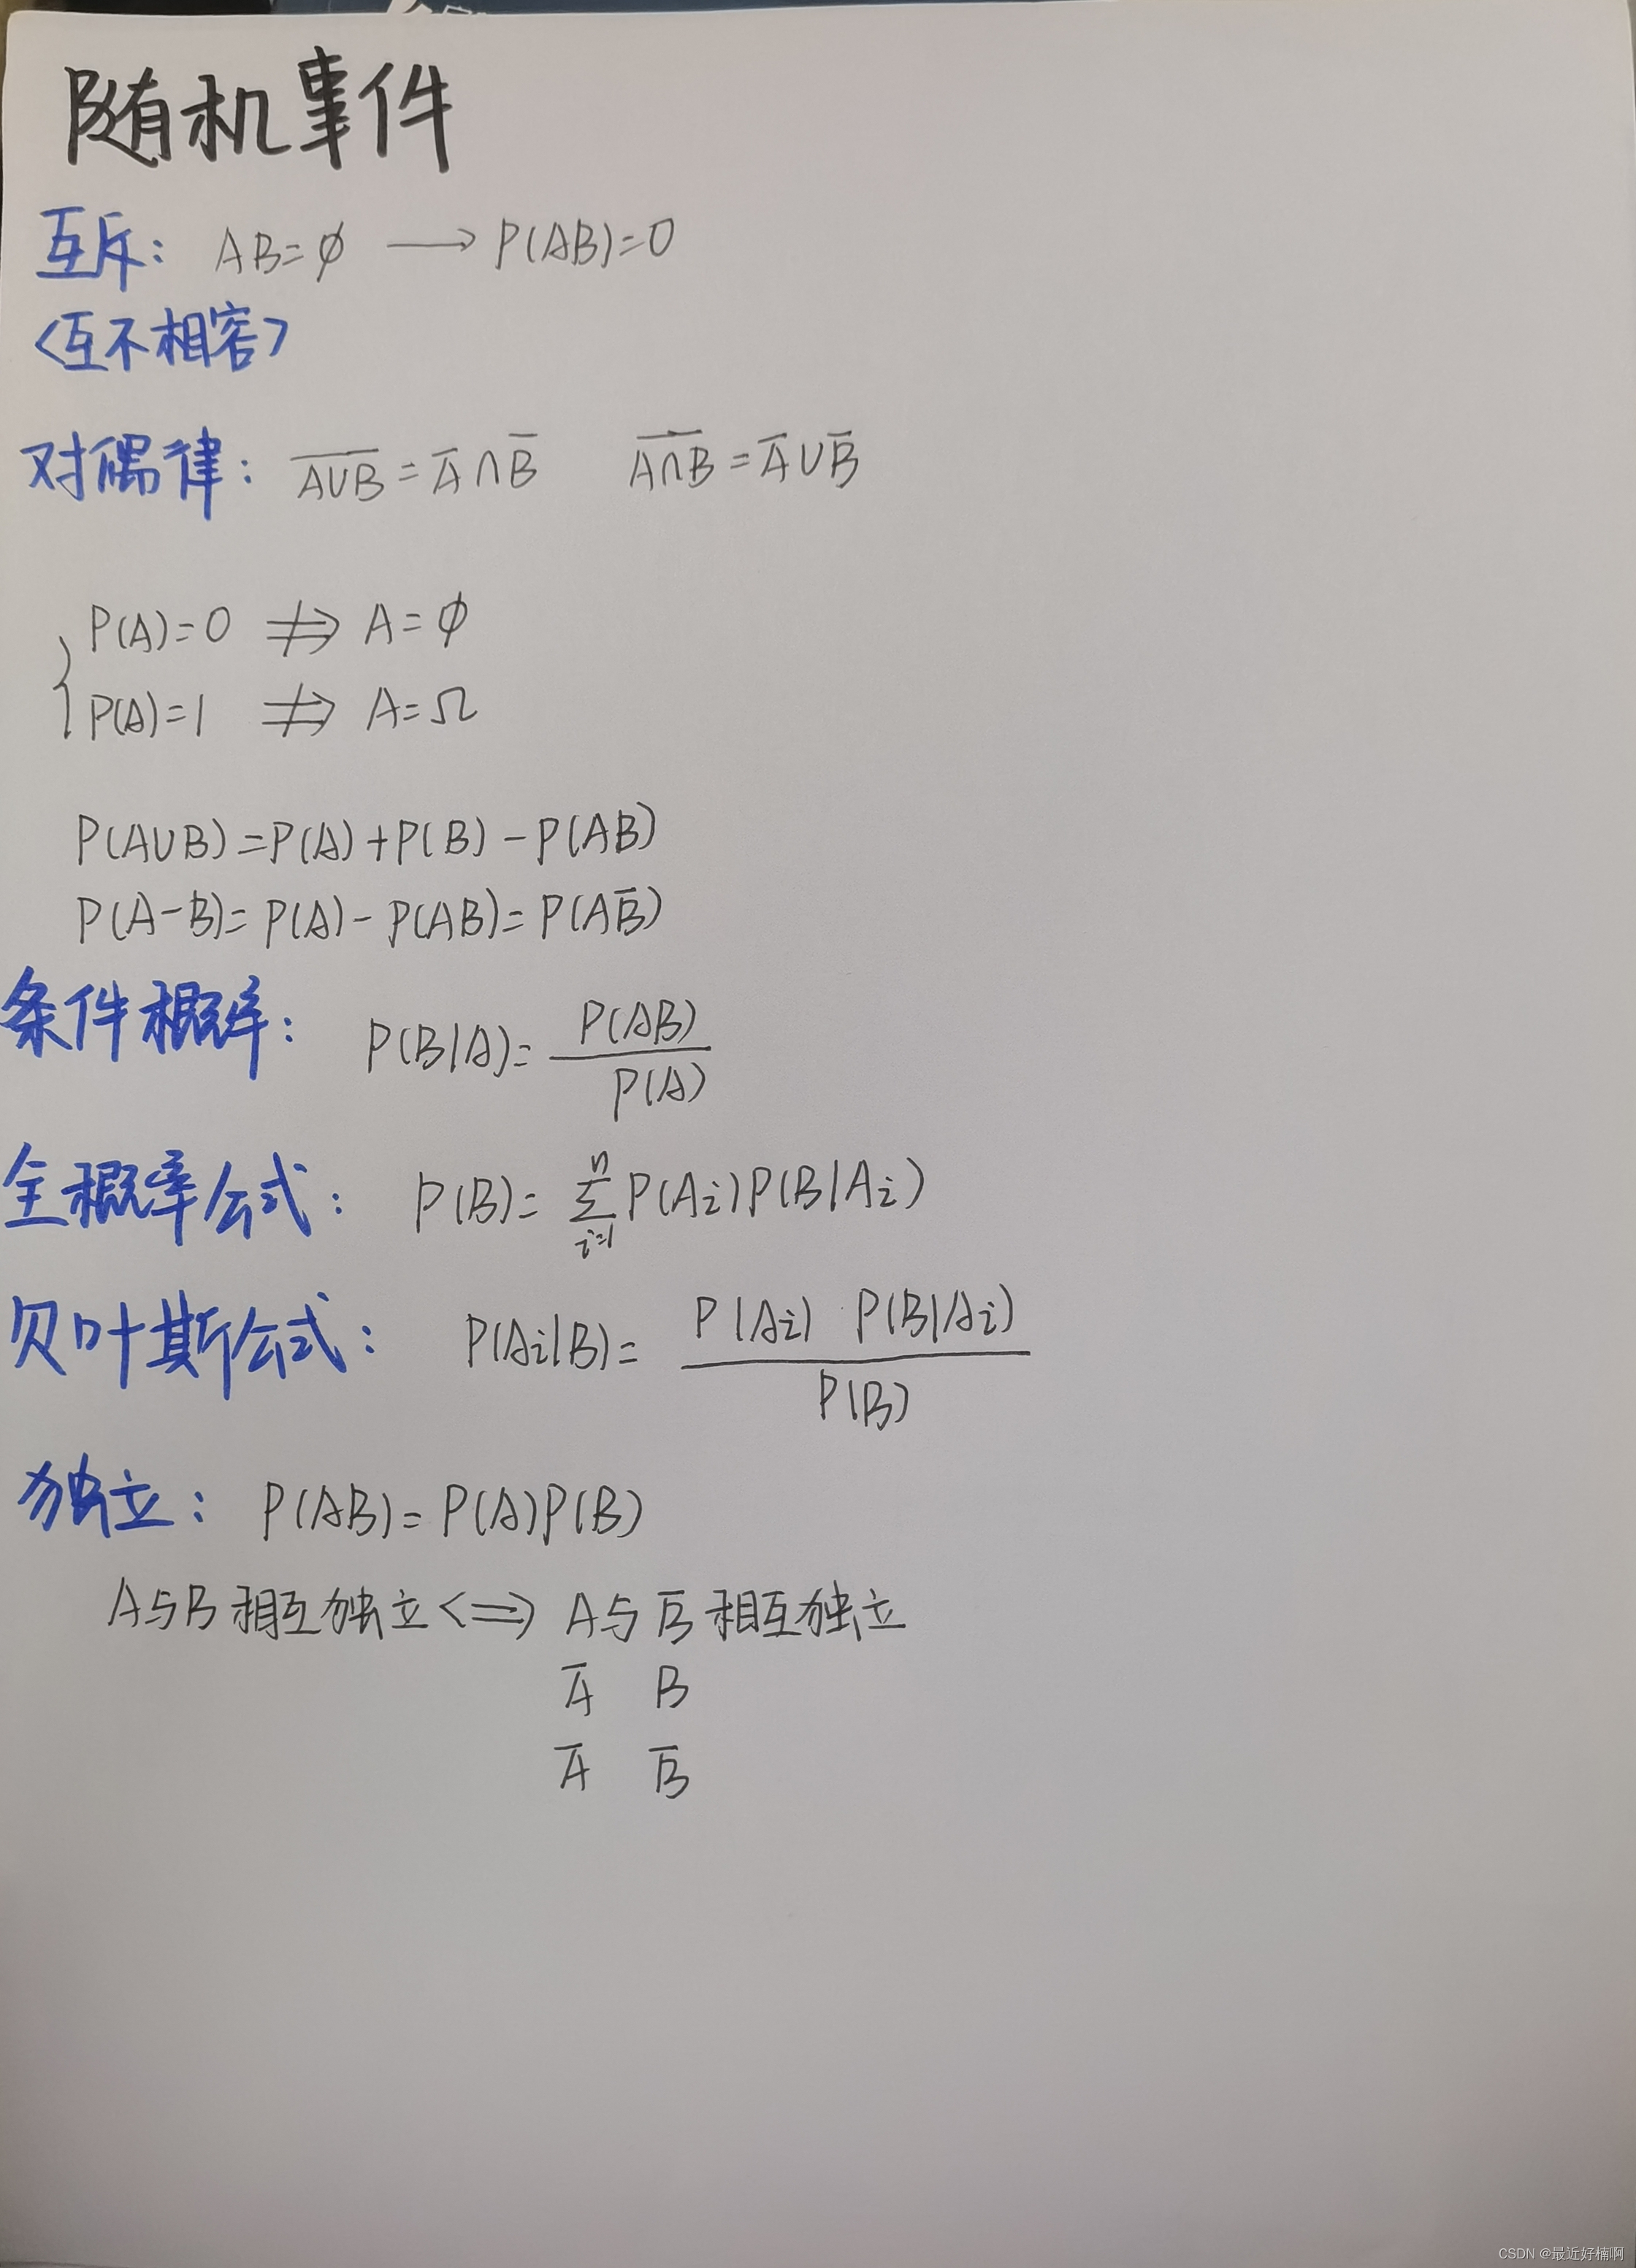 随机事件
互斥: AB=∅ ⟶ P(AB)=0
<互不相容>
对偶律: \overline{A∪B}=\overline{A}∩\overline{B} \overline{A∩B}=\overline{A}∪\overline{B}
P(A)=0 ⇏ A=∅
P(A)=1 ⇏ A=Ω
P(A∪B)=P(A)+P(B)-P(AB)
P(A-B)=P(A)-P(AB)=P(A\overline{B})
条件概率: P(B|A)=\frac{P(AB)}{P(A)}
全概率公式: P(B)=\sum_{i=1}^{n}P(Ai)P(B|Ai)
贝叶斯公式: P(Ai|B)=\frac{P(Ai)·P(B|Ai)}{P(B)}
独立: P(AB)=P(A)P(B)
A与B相互独立<=>A与\overline{B}相互独立
\overline{A} B
\overline{A} \overline{B}
CSDN @最近好楠啊